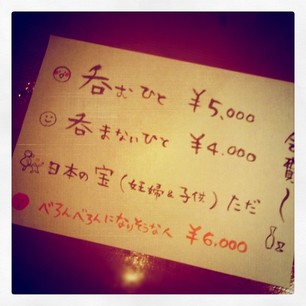 会費
呑むひと ¥5,000
呑まないひと ¥4,000
日本の宝(妊婦&子供)ただ
べろんべろんになりそうな人 ¥6,000